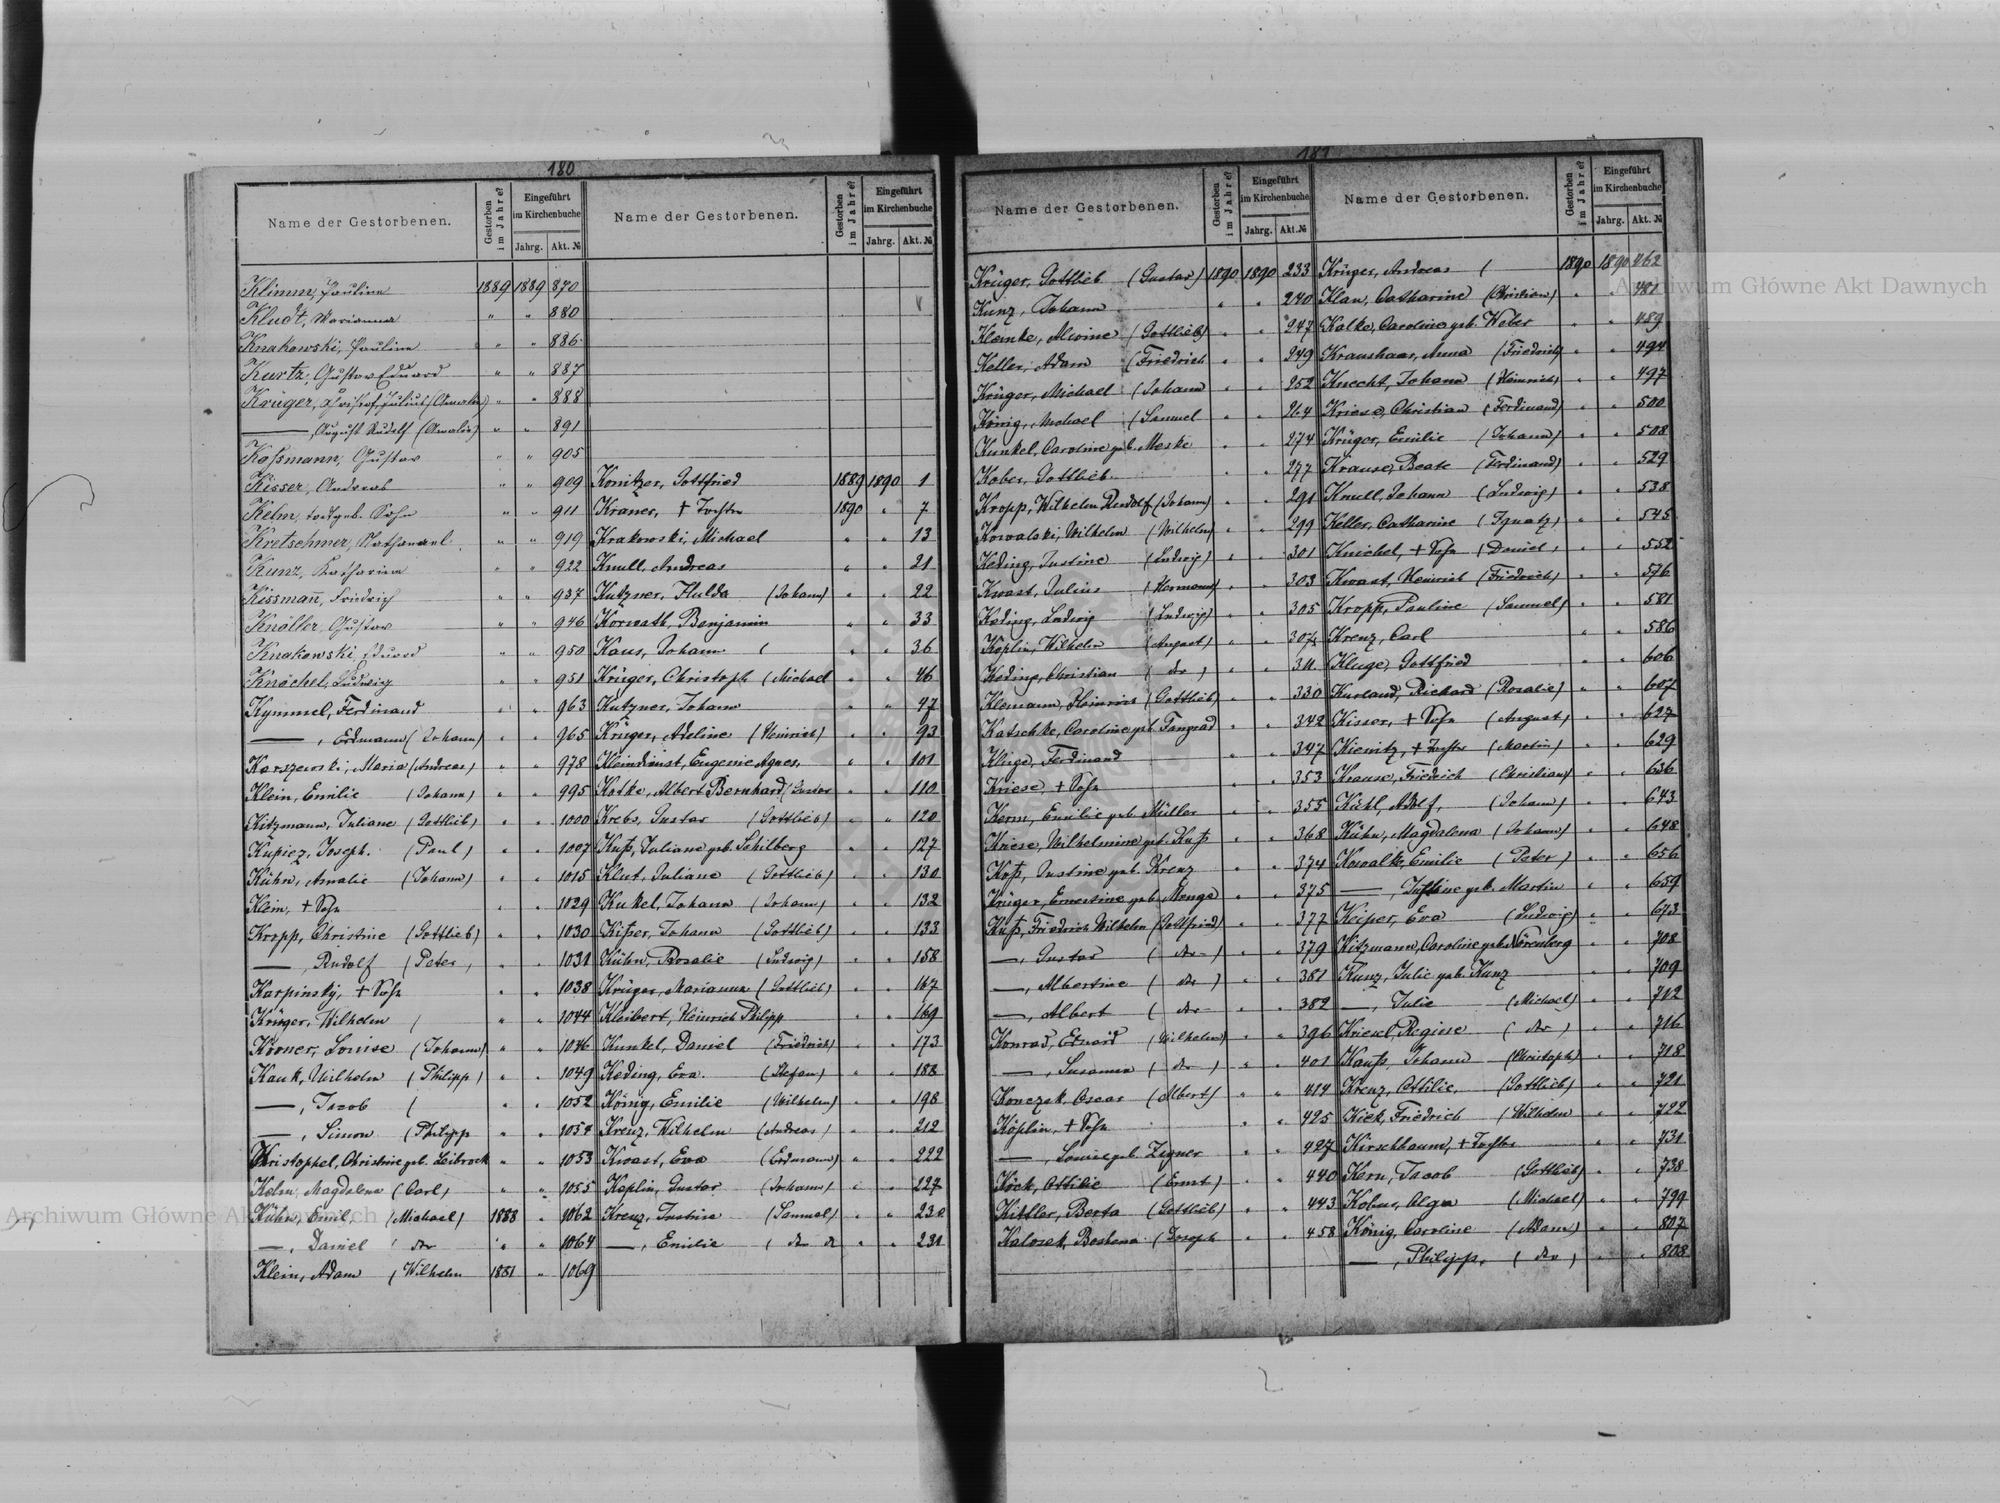 180
Name der Gestorbenen.
Gestorben im Jahre?
Eingeführt im Kirchenbuche
Jahrg. Akt. №
Klimm, Pauline 1889 1889 870
Kludt, Marianna " " 880
Knakowski, Pauline " " 886
Kurtz, Gustav Eduard " " 887
Krüger, Julius (Amalie) " " 888
—, August Rudolf (Amalie) " " 891
Koßmann, Gustav " " 905
Kisser, Andreas " " 909
Kelm, todtgeb. Sohn " " 911
Kretschmer, Nathanael " " 919
Kunz, Katharina " " 922
Kissmann, Friedrich " " 937
Knöller, Gustav " " 946
Knakowski, Eduard " " 950
Knöchel, Ludwig " " 951
Kymmel, Ferdinand " " 963
—, Erdmann (Johann) " " 965
Karszewski, Maria (Andreas) " " 978
Klein, Emilie (Johann) " " 995
Kitzmann, Juliane (Gottlieb) " " 1000
Kupiez, Joseph. (Paul) " " 1007
Kühn, Amalie (Johann) " " 1015
Klein, + Sohn " " 1029
Kropp, Christine (Gottlieb) " " 1030
—, Rudolf (Peter) " " 1031
Karpinsky, + Sohn " " 1038
Krüger, Wilhelm ( " " 1044
Körner, Louise (Johann) " " 1046
Kauk, Wilhelm (Philipp) " " 1049
—, Jacob ( " " 1052
—, Simon (Philipp " " 1054
Christophel, Christine geb. Leibrock " " 1053
Kelm, Magdalena (Carl) " " 1055
Kühn, Emil, (Michael) 1888 " 1062
—, Daniel ( dto " " 1064
Klein, Adam (Wilhelm 1881 " 1069
Name der Gestorbenen.
Gestorben im Jahre?
Eingeführt im Kirchenbuche
Jahrg. Akt. №
Konitzer, Gottfried 1889 1890 1
Kraner, + Tochter 1890 " 7
Krakowski, Michael " " 13
Knull, Andreas " " 21
Kutzner, Hulda (Johann) " " 22
Korwath, Benjamin " " 33
Kaus, Johann ( " " 36
Krüger, Christoph (Michael " " 46
Kutzner, Johann " " 47
Krüger, Adeline (Heinrich) " " 93
Kleindienst, Eugenie Agnes. " " 101
Katke, Albert Bernhard (Gustav " " 110
Krebs, Gustav (Gottlieb) " " 120
Kuß, Juliane geb. Schilberg " " 127
Klut, Juliane (Gottlieb) " " 130
Kukel, Johann (Johann) " " 132
Kißer, Johann (Gottlieb) " " 133
Kühn, Rosalie (Ludwig) " " 158
Krüger, Marianna (Gottlieb) " " 167
Kleibert, Heinrich Philipp " " 169
Kunkel, Daniel (Friedrich) " " 173
Keding, Eva. (Stefan) " " 183
König, Emilie (Wilhelm) " " 198
Krenz, Wilhelm (Andreas) " " 212
Kwast, Eva (Erdmann) " " 222
Keplin, Gustav (Johann) " " 227
Krenz, Justine (Samuel) " " 230
—, Emilie ( dto " " 231
181
Name der Gestorbenen.
Gestorben im Jahre?
Eingeführt im Kirchenbuche
Jahrg. Akt. №
Krüger, Gottlieb (Gustav) 1890 1890 233
Kunz, Johann " " 240
Klemke, Alwine (Gottlieb) " " 247
Keller, Adam (Friedrich " " 249
Krüger, Michael (Johann " " 252
König, Michael (Samuel " " 264
Kunkel, Caroline geb. Meske " " 274
Kober, Gottlieb. " " 277
Kropp, Wilhelm Rudolf (Johann) " " 291
Kowalski, Wilhelm (Wilhelm) " " 299
Keding, Justine (Ludwig) " " 301
Kwast, Julius (Hermann) " " 303
Keding, Ludwig (Ludwig) " " 305
Keplin, Wilhelm (August) " " 307
Keding, Christian ( dto ) " " 311
Klemann, Heinrich (Gottlieb) " " 330
Katschke, Caroline geb. Tangrad " " 342
Kluge, Ferdinand " " 347
Kriese, + Sohn " " 353
Kern, Emilie geb. Müller " " 355
Kriese, Wilhelmine geb. Kuß " " 368
Koß, Justine geb. Krenz " " 374
Krüger, Ernestine geb. Menge " " 375
Kuß, Friedrich Wilhelm (Gottfried) " " 377
—, Gustav ( dto ) " " 379
—, Albertine ( dto ) " " 381
—, Albert ( dto " " 382
Konrad, Eduard (Wilhelm) " " 396
—, Susanna ( dto ) " " 401
Konczak, Oscar (Albert) " " 414
Köplin, + Sohn " " 425
—, Louise geb. Zegner " " 427
Köck, Ottilie (Ernst) " " 440
Kittler, Berta (Gottlieb) " " 443
Kalosek, Boshena (Joseph " " 458
Name der Gestorbenen.
Gestorben im Jahre?
Eingeführt im Kirchenbuche
Jahrg. Akt. №
Krüger, Andreas ( 1890 1890 462
Klau, Catharine (Christian) " " 481
Kalke, Caroline geb. Weber " " 489
Kraushaar, Anna (Friedrich) " " 494
Knecht, Johann (Heinrich) " " 497
Kriese, Christian (Ferdinand) " " 500
Krüger, Emilie (Johann) " " 508
Krause, Beate (Ferdinand) " " 529
Knull, Johann (Ludwig) " " 538
Keller, Catharine (Ignatz) " " 545
Knichel, + Sohn (Daniel) " " 552
Kwast, Heinrich (Friedrich) " " 576
Kropp, Pauline (Samuel) " " 581
Krenz, Carl " " 586
Kluge, Gottfried " " 606
Kurland, Richard (Rosalie) " " 607
Kisser, + Sohn (August) " " 627
Kienitz, + Tochter (Martin) " " 629
Krause, Friedrich (Christian) " " 636
Kühl, Adolf, (Johann) " " 643
Kühn, Magdalena (Johann) " " 648
Kowalke, Emilie (Peter) " " 656
—, Justine geb. Martin " " 659
Keiper, Eva (Ludwig) " " 673
Kitzmann, Caroline geb. Nörenberg " " 708
Kunz, Julie geb. Kunz " " 709
—, Julie (Michael) " " 712
Kriesel, Regine ( dto ) " " 716
Kauß, Johann (Christoph) " " 718
Krenz, Ottilie, (Gottlieb) " " 721
Kiek, Friedrich (Wilhelm " " 722
Kirschbaum, + Tochter " " 731
Kern, Jacob (Gottlieb) " " 738
Kobus, Olga (Michael) " " 799
König, Caroline (Adam) " " 807
—, Philipp, ( dto ) " " 808
Archiwum Główne Akt Dawnych
Archiwum Główne Akt Dawnych